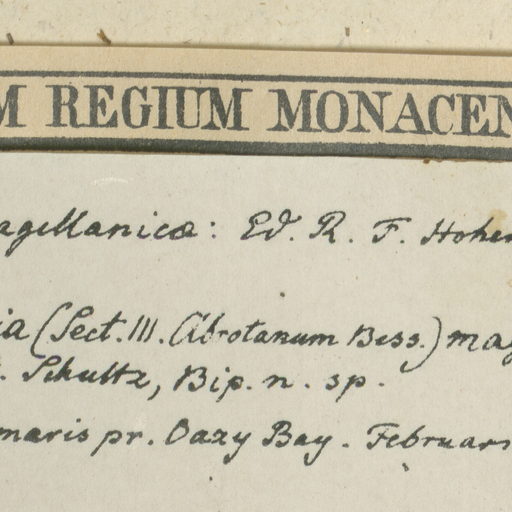 M REGIUM MONACEN
agellanicæ: Ed. R. F. Hohen
ia (Sect. III. Abrotanum Bess.) mag
. Schultz, Bip. n. sp.
maris pr. Oazy Bay. Februar